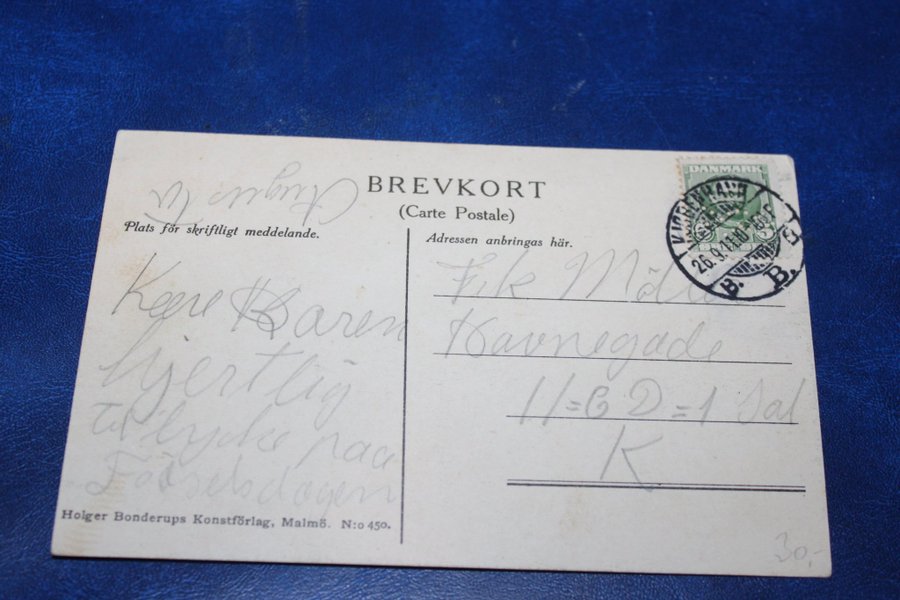 BREVKORT
(Carte Postale)
Plats för skriftligt meddelande.
Kære Karen
hjertlig
Til lycke paa
Födselsdagen
Holger Bonderups Konstförlag, Malmö. N:o 450.
Adressen anbringas här.
DANMARK
KJØBENHAVN
26.9.11
B. B.
Frk
Havnegade
1 Sal
K
30,-